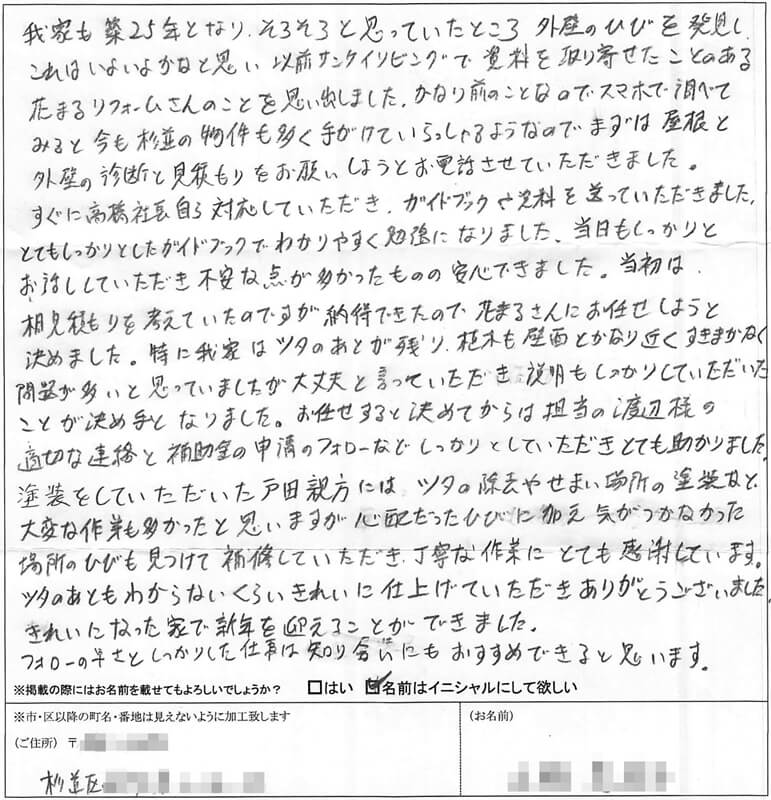 我家も築25年となり、そろそろと思っていたところ 外壁のひびを発見し、
これはいよいよかなと思い 以前サンケイリビングで資料を取り寄せたことのある
花まるリフォームさんのことを思い出しました。かなり前のことなのでスマホで調べて
みると今も杉並の物件も多く手がけていらっしゃるようなのでまずは屋根と
外壁の診断と見積もりをお願いしようとお電話させていただきました。
すぐに高橋社長自ら対応していただき、ガイドブックや資料を送っていただきました。
とてもしっかりとしたガイドブックでわかりやすく勉強になりました。当日もしっかりと
お話ししていただき不安な点が多かったものの安心できました。当初は、
相見積もりを考えていたのですが納得できたので花まるさんにお任せしようと
決めました。特に我家はツタのあとが残り、植木も壁面とかなり近くすきまがなく
問題が多いと思っていましたが大丈夫と言っていただき説明もしっかりしていただいた
ことが決め手となりました。お任せすると決めてからは担当の渡辺様の
適切な連絡と補助金の申請のフォローなどしっかりとしていただきとても助かりました。
塗装をしていただいた戸田親方には、ツタの除去やせまい場所の塗装など
大変な作業も多かったと思いますが心配だったひびに加え気がつかなかった
場所のひびも見つけて補修していただき、丁寧な作業にとても感謝しています。
ツタのあともわからないくらいきれいに仕上げていただきありがとうございました。
きれいになった家で新年を迎えることができました。
フォローの早さとしっかりした仕事は知り合いにもおすすめできると思います。
※掲載の際にはお名前を載せてもよろしいでしょうか? □はい ☑名前はイニシャルにして欲しい
※市・区以降の町名・番地は見えないように加工致します
(お名前)
(ご住所) 〒
杉並区